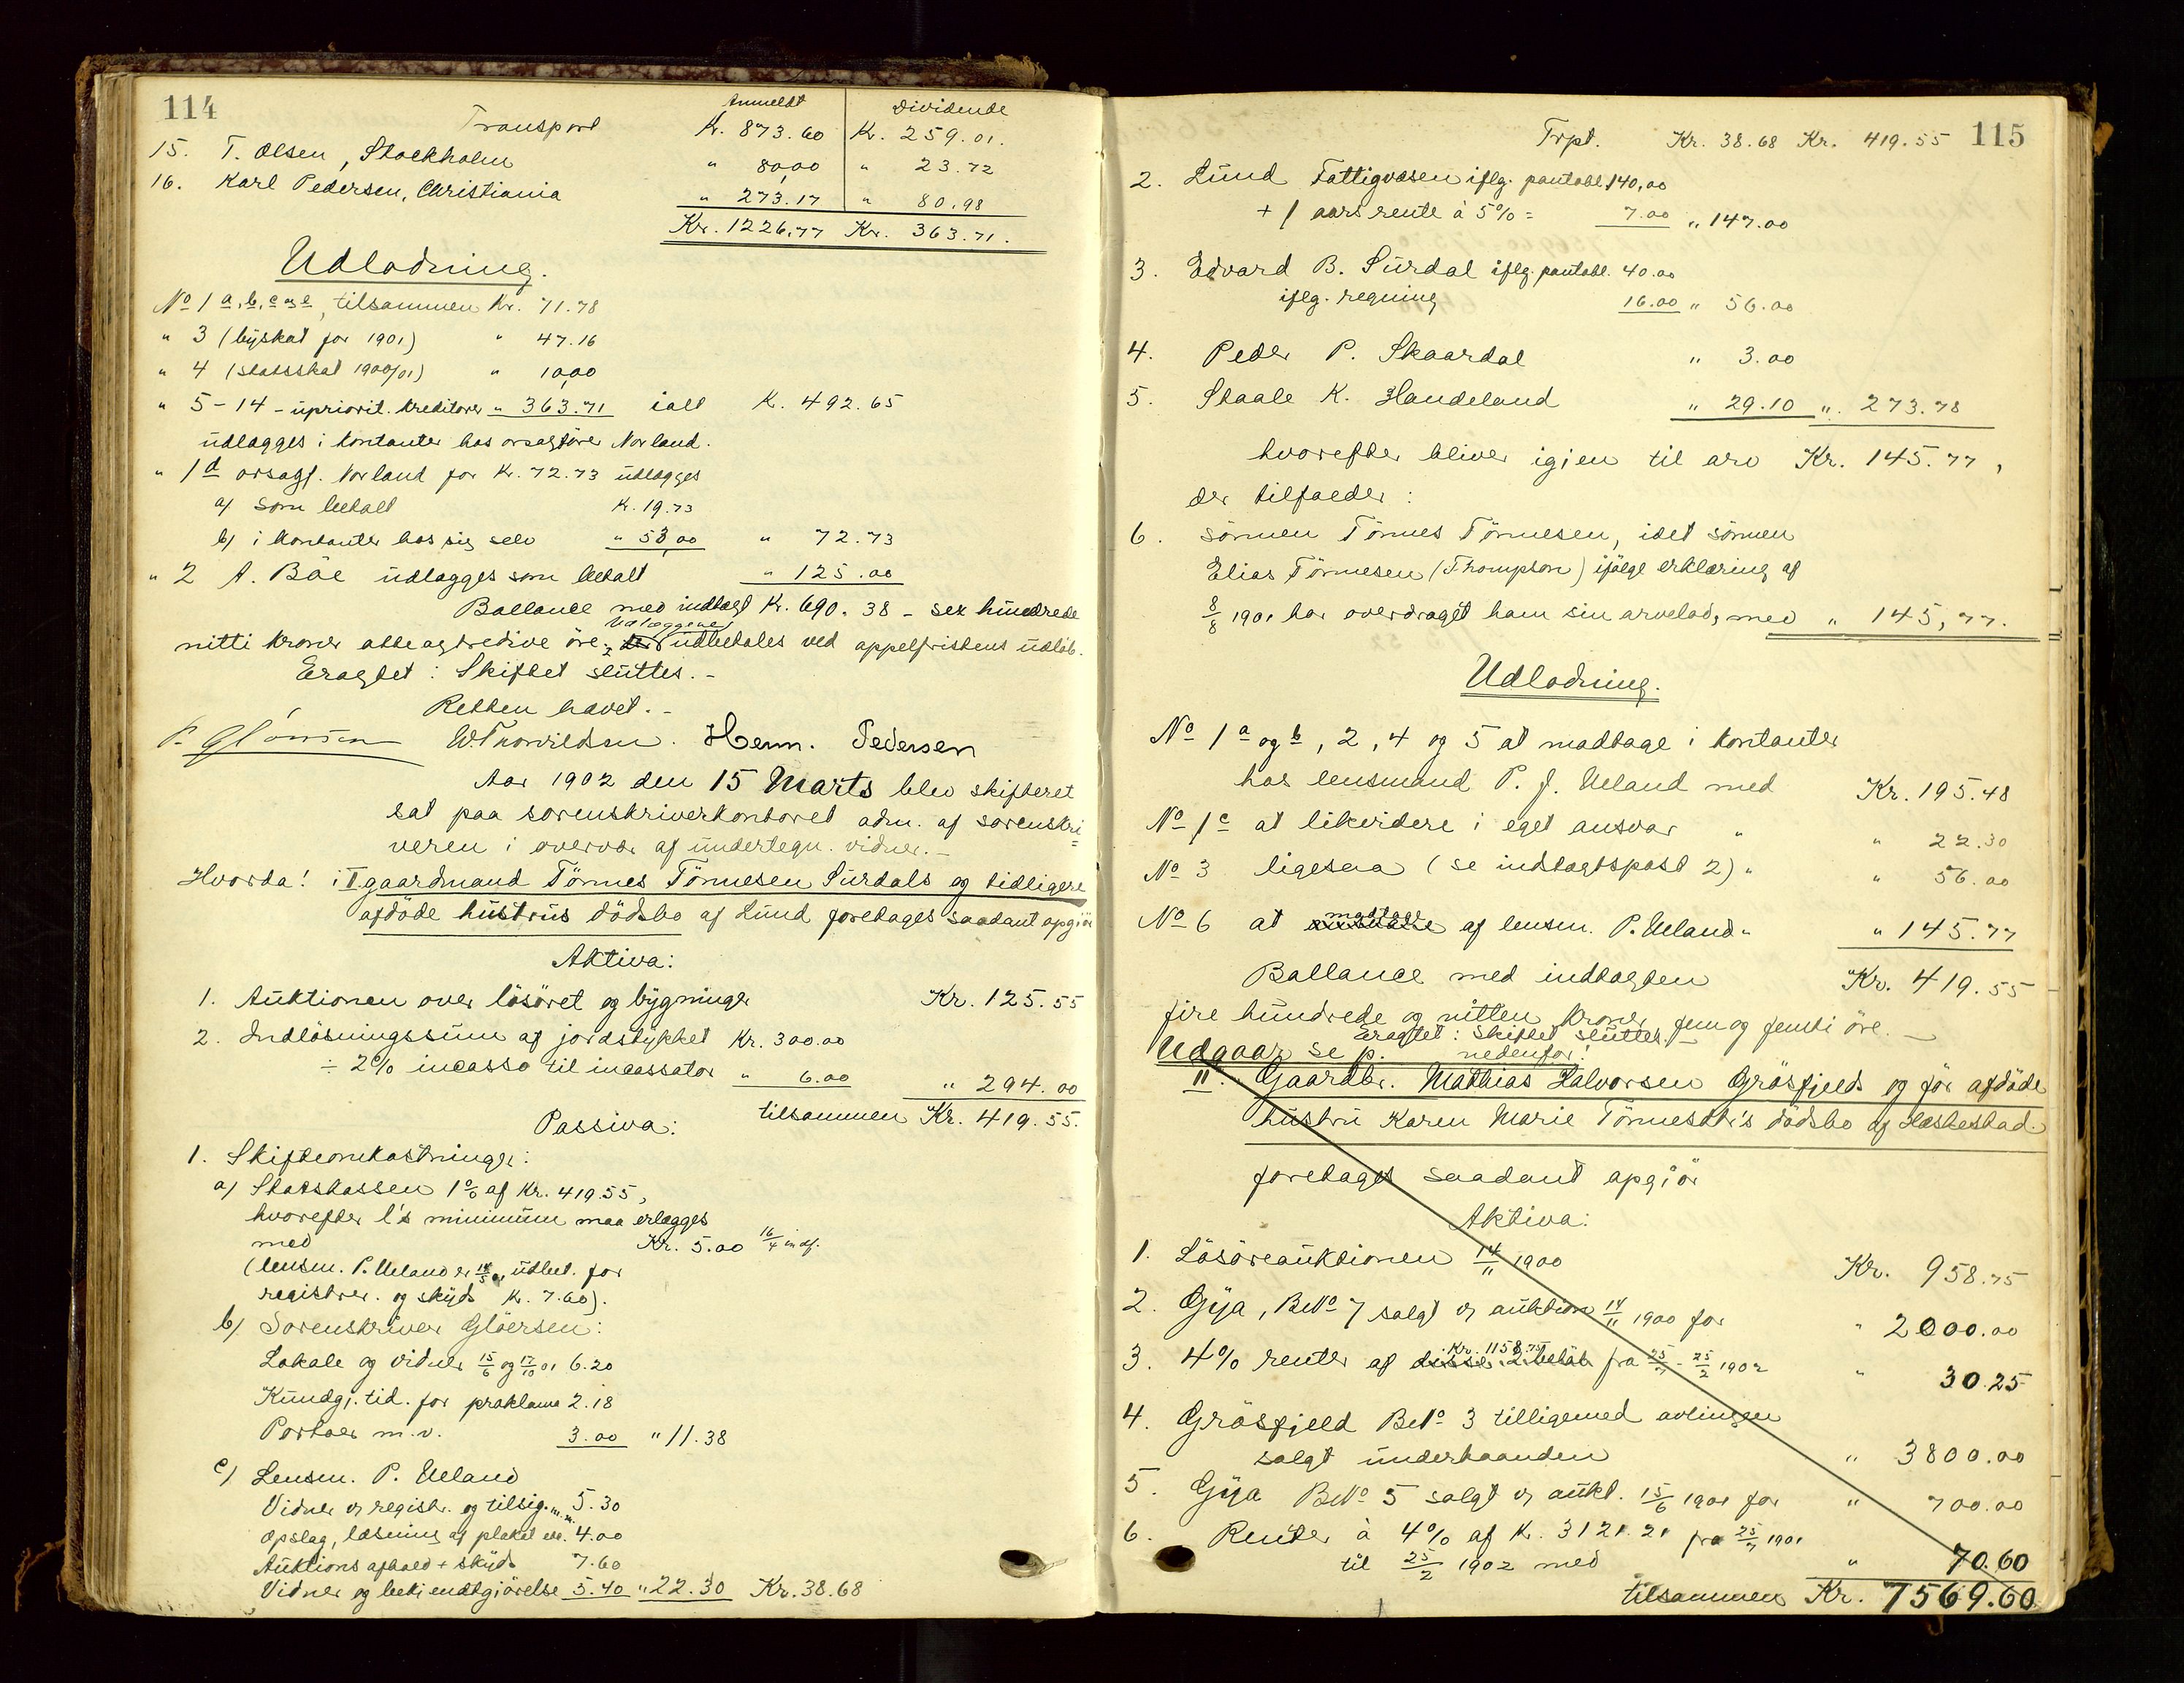 114
Anmeldt Dividende
Transport Kr. 873.60 Kr. 259.01.
15. T. Olsen, Stockholm " 80,00 " 23.72
16. Karl Pedersen, Christiania " 273.17 " 80.98
Kr. 1226,77 Kr. 363.71.
Udlodning.
No 1 a, b, c og e, tilsammen Kr. 71.78
" 3 (byskat for 1901) " 47.16
" 4 (statsskat 1900/01) " 10,00
" 5-14 - upriorit. kreditorer " 363.71 ialt K. 492.65
udlægges i kontanter hos orsagfører Norland.
" 1 d orsagf. Norland for Kr. 72.73 udlægges
a) som betalt K. 19.73
b) i kontanter hos sig selv " 53,00 " 72.73
" 2 A. Böe udlægges som betalt " 125.00
Ballance med indtægt Kr. 690.38 - sex hundrede
Udlæggene
nitti kroner otteogtredive öre, udbetales ved appelfristens udløb.
Eragtet: Skiftet sluttes. -
Retten hævet. -
P. Glörsen W. Thorvildsen. Herm. Pedersen
Aar 1902 den 15 Marts blev skifteret
sat paa sorenskriverkontoret adm. af sorenskri=
veren i overvær af undertegn. vidner. -
Hvorda! i I. gaardmand Tönnes Tönnesen Surdals og tidligere
afdöde hustrus dödsbo af Lund foretages saadant opgiör
Aktiva:
1. Auktionen over lösöret og bygninger Kr. 125.55
2. Indlösningssum af jordstykket Kr. 300.00
÷ 2% incasso til incassator " 6.00 " 294.00
tilsammen Kr. 419.55.
Passiva:
1. Skifteomkostninger:
a) Statskassen 1% af Kr. 419.55,
hvorefter l's minimum maa erlægges
med Kr. 5.00 16/4 indf.
(lensm. P. Ueland er 14/5 01 udbet. for
registrer. og skyds K. 7.60).
b) Sorenskriver Glöersen:
Lokale og vidner 15/6 og 17/10 01 6.20
Kundgj. tid. for proklama 2.18
Portoer m.v. 3.00 " 11.38
c) Lensm. P. Ueland
Vidner v. registr. og tilsig. m.m. 5.30
Opslag, læsning af plakat etc. 4.00
Auktions afhold + skyds 7.60
Vidner og bekjendtgiörelse 5.40 " 22.30 Kr. 38.68
115
Trpt. Kr. 38.68 Kr. 419.55
2. Lund Fattigvæsen iflg. pantobl. 140,00
+ 1 aars rente à 5% = 7.00 " 147.00
3. Edvard B. Surdal iflg. pantobl. 40.00
iflg. regning 16.00 " 56.00
4. Peder P. Skaardal " 3.00
5. Staale K. Handeland " 29.10 " 273.78
hvorefter bliver igjen til arv Kr. 145.77,
der tilfalder:
6. sönnen Tönnes Tönnesen, idet sönnen
Elias Tönnesen (Thompson) ifölge erklæring af
8/8 1901 har overdraget ham sin arvelod, med " 145,77.
Udlodning.
No 1 a og b, 2, 4 og 5 at modtage i kontanter
hos lensmand P. J. Ueland med Kr. 195.48
No 1 c at likvidere i eget ansvar " " 22.30
No 3 ligesaa (se indtægtspost 2) " " 56.00
No 6 at modtage af lensm. P. Ueland " " 145.77
Ballance med indtægten Kr. 419.55 -
fire hundrede og nitten kroner fem og femti öre. -
Eragtet: Skiftet sluttes. -
Udgaar se p. nedenfor!
II. Gaardbr. Mathias Halvorsen Grösfjelds og før afdöde
hustru Karen Marie Tönnesdtr's dödsbo af Heskestad
foretages saadant opgiör
Aktiva:
1. Lösöreauktionen 14/11 1900 Kr. 958.75
2. Gya, BNo 7 solgt v. auktion 14/11 1900 for " 2000.00
Kr. 1158.75
3. 4% renter af disse 2 beløb fra 25/7 - 25/2 1902 " 30.25
4. Grösfjeld BNo 3 tilligemed avlingen
solgt underhaanden " 3800.00
5. Gya BNo 5 solgt v. aukt. 15/6 1901 for " 700.00
6. Renter à 4% af K. 3121.21 fra 25/7 1901
til 25/2 1902 med " 70.60
tilsammen Kr. 7569.60